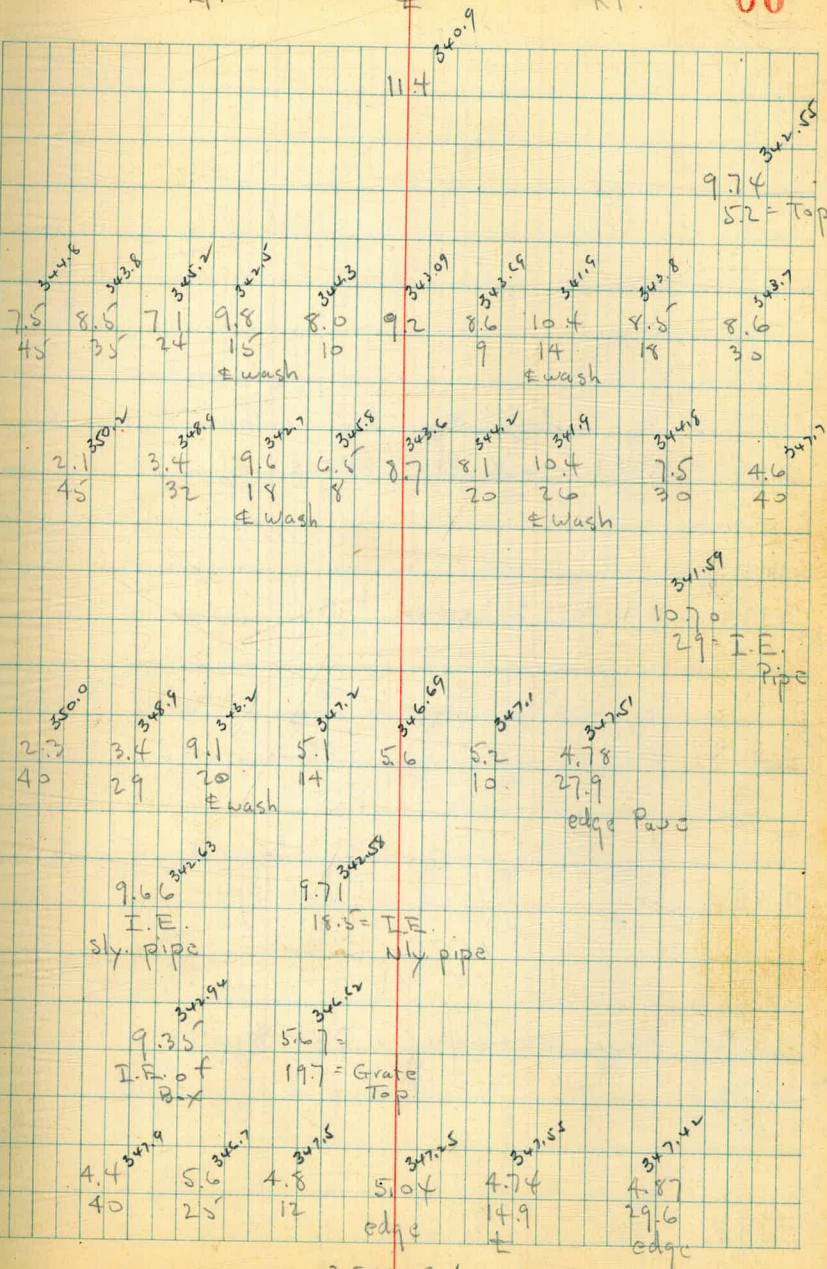 ℄ RT.
340.9
11.4
342.55
9.74
5.2 = Top
344.8 343.8 345.2 342.5 344.3 343.09 343.69 341.9 343.8 343.7
7.5 8.5 7.1 9.8 8.0 9.2 8.6 10.4 8.5 8.6
45 35 24 15 10 9 14 18 30
℄ wash ℄ wash
350.2 348.9 342.7 345.8 343.6 344.2 341.9 344.8 347.7
2.1 3.4 9.6 6.5 8.7 8.1 10.4 7.5 4.6
45 32 18 8 20 26 30 40
℄ wash ℄ wash
341.59
10.70
29 = I.E.
Pipe
350.0 348.9 343.2 347.2 346.69 347.1 347.51
2.3 3.4 9.1 5.1 5.6 5.2 4.78
40 29 20 14 10 27.9
℄ wash
edge Pave
342.63 342.58
9.66 9.71
I.E. 18.5 = I.E.
Sly. pipe Nly pipe
342.94 346.62
9.35 5.67 =
I.E. of 19.7 = Grate
Box Top
347.9 346.7 347.5 347.25 347.55 347.42
4.4 5.6 4.8 5.04 4.74 4.87
40 25 12 14.9 29.6
edge ℄ edge